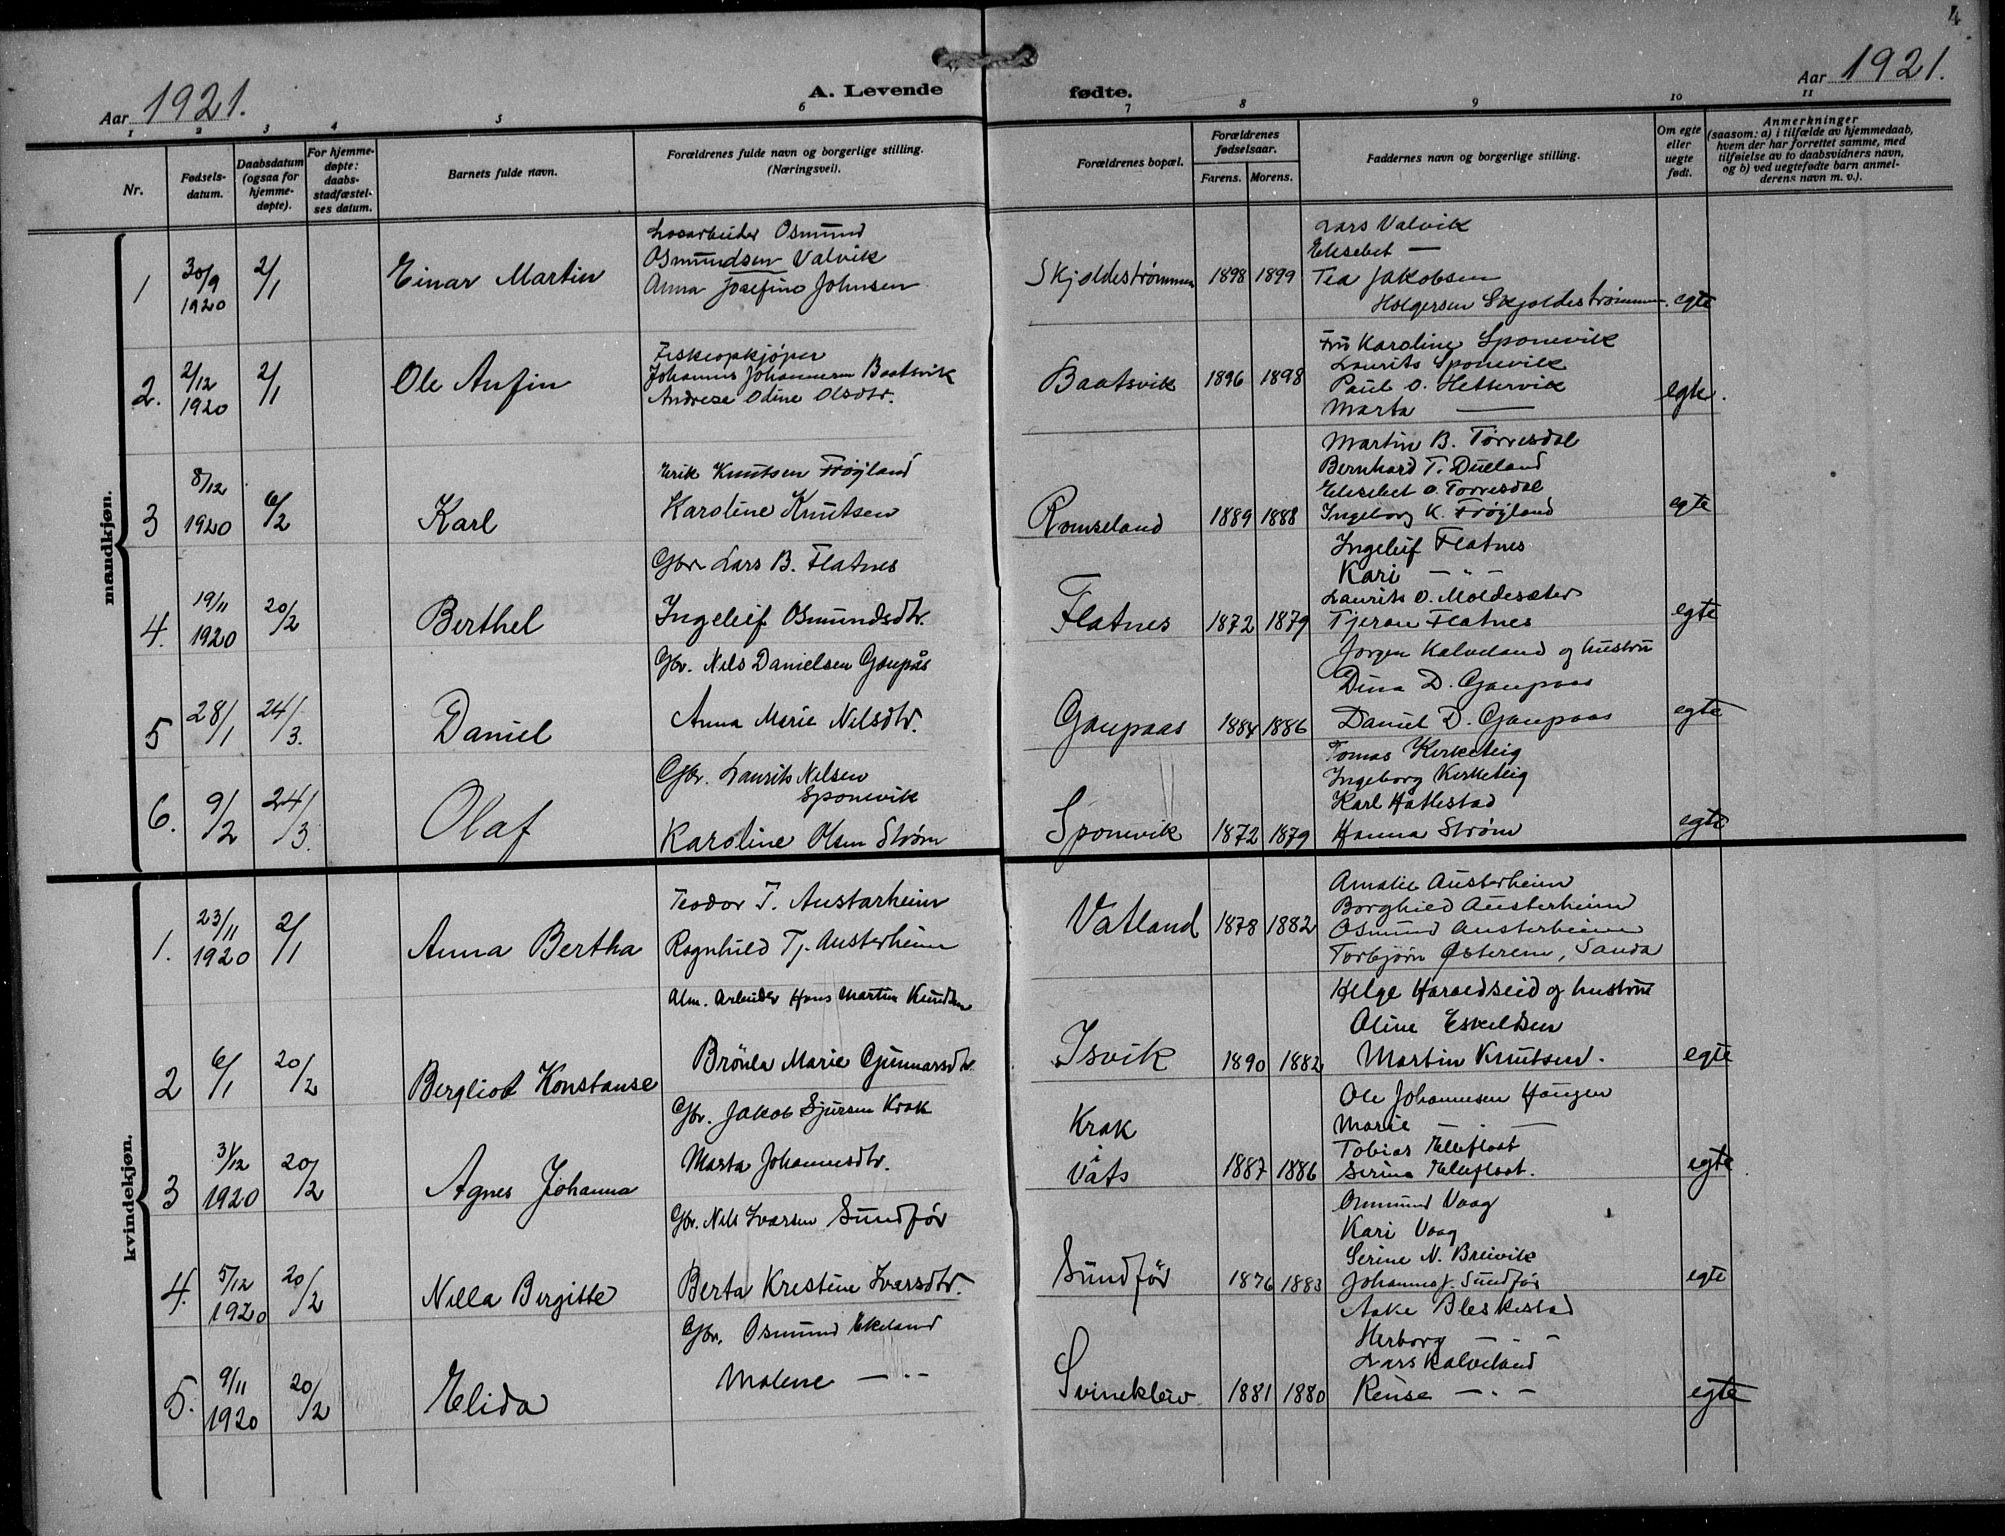 4
Aar 1921.
A. Levende
fødte.
Aar 1921.
1 2 3 4 5 6 7 8 9 10 11
Nr.
Fødsels-
datum.
Daabsdatum
(ogsaa for
hjemme-
døpte).
For hjemme-
døpte:
daabs-
stadfæstel-
ses datum.
Barnets fulde navn.
Forældrenes fulde navn og borgerlige stilling.
(Næringsvei).
Forældrenes bopæl.
Forældrenes
fødselsaar.
Farens. Morens.
Faddernes navn og borgerlige stilling.
Om egte
eller
uegte
født.
Anmerkninger
(saasom: a) i tilfælde av hjemmedaab,
hvem der har forrettet samme, med
tilføielse av to daabsvidners navn,
og b) ved uegtefødte barn anmel-
derens navn m. v.).
mandkjøn.
1 30/9 1920 2/1 Einar Martin
Løsarbeider Osmund
Osmundsen Valvik
Anna Josefine Johnsen
Skjoldestrømmen 1898 1899
Lars Valvik
Elisebet —
Tea Jakobsen
Holgersen Skjoldestrømmen. egte
2. 2/12 1920 2/1 Ole Anfin
Fiskeopkjøper
Johannes Johannesen Baatsvik
Andrea Odine Olsdtr.
Baatsvik 1896 1898
Fru Karoline Sponevik
Laurits Sponevik
Paul O. Hettervik
Marta —
egte.
3 8/12 1920 6/2 Karl
Erik Knutsen Frøjland
Karoline Knutsen
Romseland 1889 1888
Martin B. Tørresdal
Bernhard T. Dueland
Elisebet O. Tørresdal
Ingeborg K. Frøjland
egte
4. 19/11 1920 20/2 Berthel
Gbr. Lars B. Flatnes
Ingeleif Osmundsdtr.
Flatnes 1872 1879
Ingeleif Flatnes
Kari - " -
Laurits O. Moldesæter
Tjeran Flatnes
egte
5 28/1 24/3. Daniel
Gbr. Nils Danielsen Gaupås
Anna Marie Nilsdtr.
Gaupaas 1884 1886
Jørgen Kalveland og hustru
Dina D. Gaupaas
Daniel D. Gaupaas
egte
6. 9/2 24/3. Olaf
Gbr. Laurits Nilsen
Sponevik
Karoline Olsen Strøm
Sponevik 1872 1879
Tomas Kirketeig
Ingeborg Kirketeig
Karl Hatlestad
Hanna Strøm
egte
kvindekjøn.
1. 23/11 1920 2/1 Anna Bertha
Teodor T. Austarheim
Ragnhild Tj. Austerheim
Vatland 1878 1882
Amalie Austerheim
Borghild Austerheim
Osmund Austerheim
Torbjørn Østerem, Sanda
2 6/1 20/2 Bergliot Konstanse
Alm. Arbeider Hans Martin Knudsen
Brønla Marie Gunnarsdtr.
Isvik 1890 1882
Helge Haraldseid og hustru
Oline Eskildsen
Martin Knutsen.
egte
3 31/12 1920 20/2 Agnes Johanna
Gbr. Jakob Sjursen Krak
Marta Johannesdtr.
Krak
i
Vats 1887 1886
Ole Johannesen Haugen
Marie —
Tobias Eleflaat
Serina Eleflaat.
egte.
4. 5/12 1920 20/2 Nilla Birgitte
Gbr. Nils Ivarsen Sundfør
Berta Kristine Ivarsdtr.
Sundfør 1876 1883
Osmund Vaag
Kari Vaag
Serine N. Breivik
Johannes J. Sundfør
egte
5. 9/11 1920 20/2 Elida
Gbr. Osmund Ekeland
Malene — " —
Svinekleiv 1881 1880
Aake Bleskestad
Herborg - " -
Lars Kalveland
Rense - " -
egte